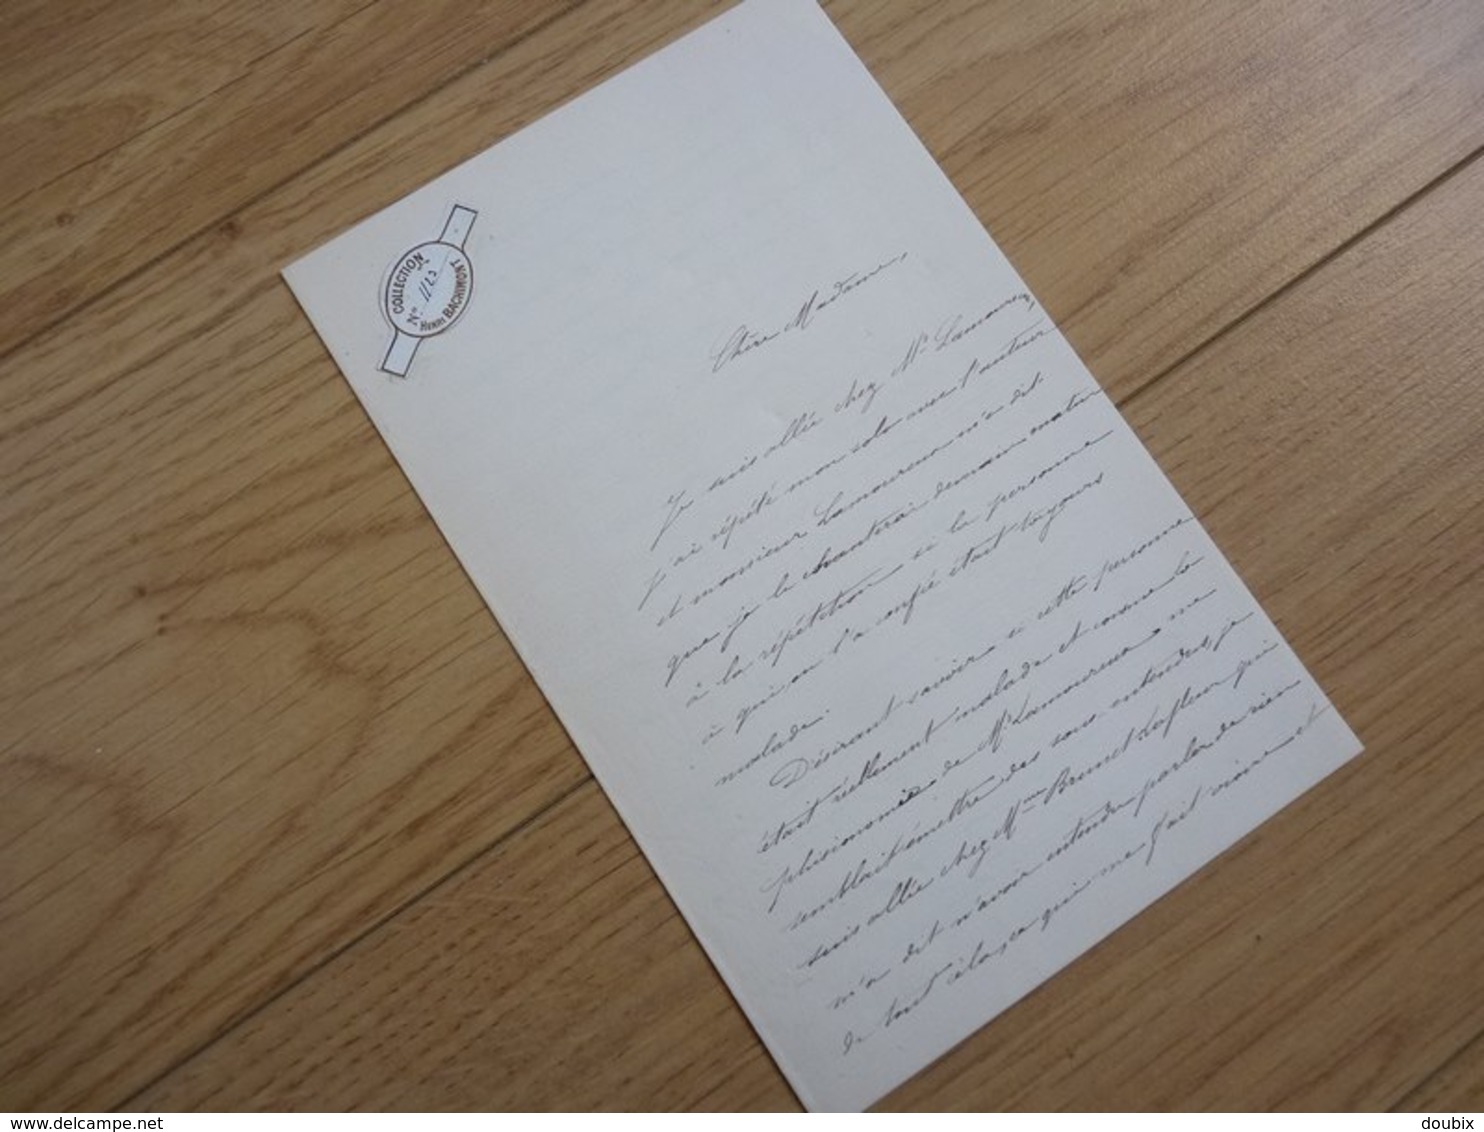 COLLECTION
No. 1123
HENRI BACHIMONT
Chère Madame,
Je suis allée chez Mr Lamoureux,
j'ai répété mon solo avec l'auteur
et monsieur Lamoureux m'a dit
que je le chanterai demain matin
à la répétition si la personne
à qui on l'a confié était toujours
malade.
Désirant savoir si cette personne
était réellement malade et comme la
phisionomie de Mr Lamoureux me
semblait émettre des sous-entendus, je
suis allée chez Mme Brunet Lafleur qui
m'a dit n'avoir entendu parler de rien
de tout cela, ce qui me fait croire et
delcampe.net
doubix